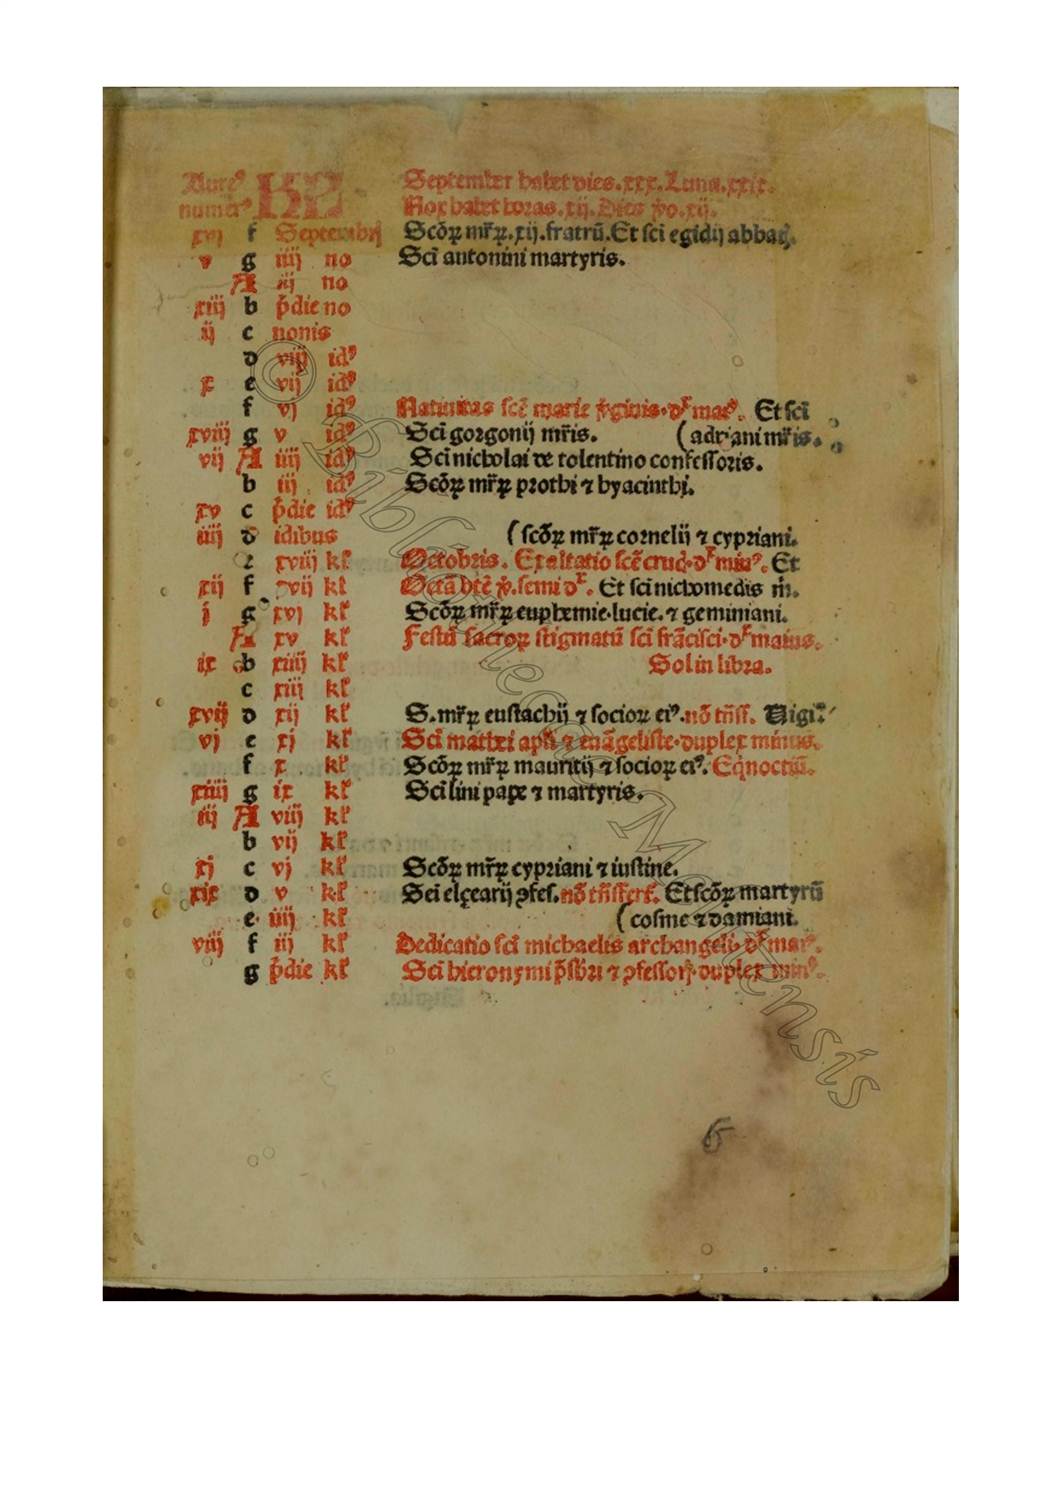 Aure⁹ KL September habet dies.xxx.Luna.xxix.
numer⁹ Nox habet horas.xij.Dies ṽo.xij.
xvj f Septembrꝭ Scōꝝ mr̄ꝝ.xij.fratrū.Et sci egidij abbatꝭ.
v g iiij no Sci antonini martyris.
A iij no
xiij b p̄die no
ij c nonis
d viij id⁹
x e vij id⁹
f vj id⁹ Natiuitas scē marie ṽginis.dr̄ mai⁹. Et sci
xviij g v id⁹ Sci gorgonij mr̄is. (adriani mr̄is.
vij A iiij id⁹ Sci nicholai de tolentino confessoris.
b iij id⁹ Scōꝝ mr̄ꝝ prothi ⁊ hyacinthi.
xv c p̄die id⁹
iiij d idibus (scōꝝ mr̄ꝝ cornelij ⁊ cypriani.
e xviij kl̄ Octobris. Exaltatio scē crucꝭ.dr̄ min⁹. Et
xij f xvij kl̄ Octā btē ṽ.semi dr̄. Et sci nichomedis m̄.
j g xvj kl̄ Scōꝝ mr̄ꝝ euphemie.lucie.⁊ geminiani.
A xv kl̄ Festū sacroꝝ stigmatū sci frācisci.dr̄ maius.
ix b xiiij kl̄ Sol in libra.
c xiij kl̄
xvij d xij kl̄ S.mr̄ꝝ eustachij ⁊ socioꝝ ei⁹.nō tn̄ss. Uigi.
vj e xj kl̄ Sci mathei apli ⁊ euāgeliste.duplex minus.
f x kl̄ Scōꝝ mr̄ꝝ mauritij ⁊ socioꝝ ei⁹. Eqnoctiū.
xiiij g ix kl̄ Sci lini pape ⁊ martyris.
iij A viij kl̄
b vij kl̄
xj c vj kl̄ Scōꝝ mr̄ꝝ cypriani ⁊ iustine.
xix d v kl̄ Sci elçearij ꝯfes.nō trāsfert̄. Et scōꝝ martyrū
e iiij kl̄ (cosme ⁊ damiani.
viij f iij kl̄ Dedicatio sci michaelis archangeli.dr̄ mai⁹.
g p̄die kl̄ Sci hieronymi p̄sbri ⁊ ꝯfessorꝭ.duplex min⁹.
6
© Bibliothecae Mariensis